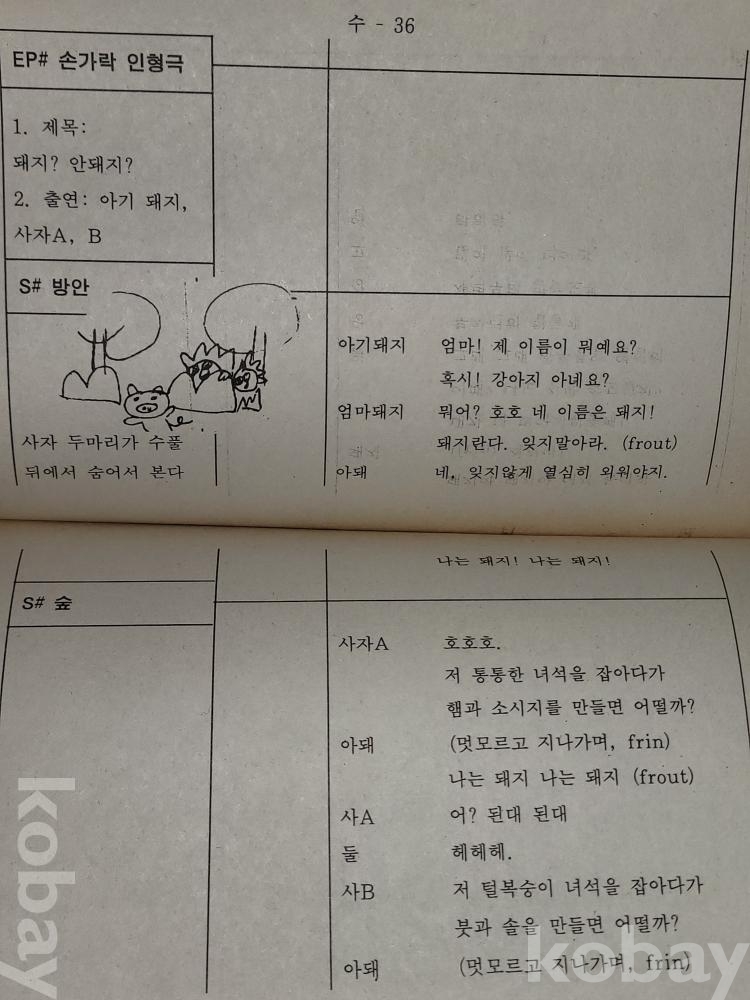 수 - 36
EP# 손가락 인형극
1. 제목:
돼지? 안돼지?
2. 출연: 아기 돼지,
사자A, B
S# 방안
사자 두마리가 수풀
뒤에서 숨어서 본다
아기돼지 엄마! 제 이름이 뭐예요?
혹시! 강아지 아녜요?
엄마돼지 뭐어? 호호 네 이름은 돼지!
돼지란다. 잊지말아라. (frout)
아돼 네, 잊지않게 열심히 외워야지.
나는 돼지! 나는 돼지!
S# 숲
사자A 호호호.
저 통통한 녀석을 잡아다가
햄과 소시지를 만들면 어떨까?
아돼 (멋모르고 지나가며, frin)
나는 돼지 나는 돼지 (frout)
사A 어? 된대 된대
둘 헤헤헤.
사B 저 털복숭이 녀석을 잡아다가
붓과 솔을 만들면 어떨까?
아돼 (멋모르고 지나가며, frin)
kobay
kobay